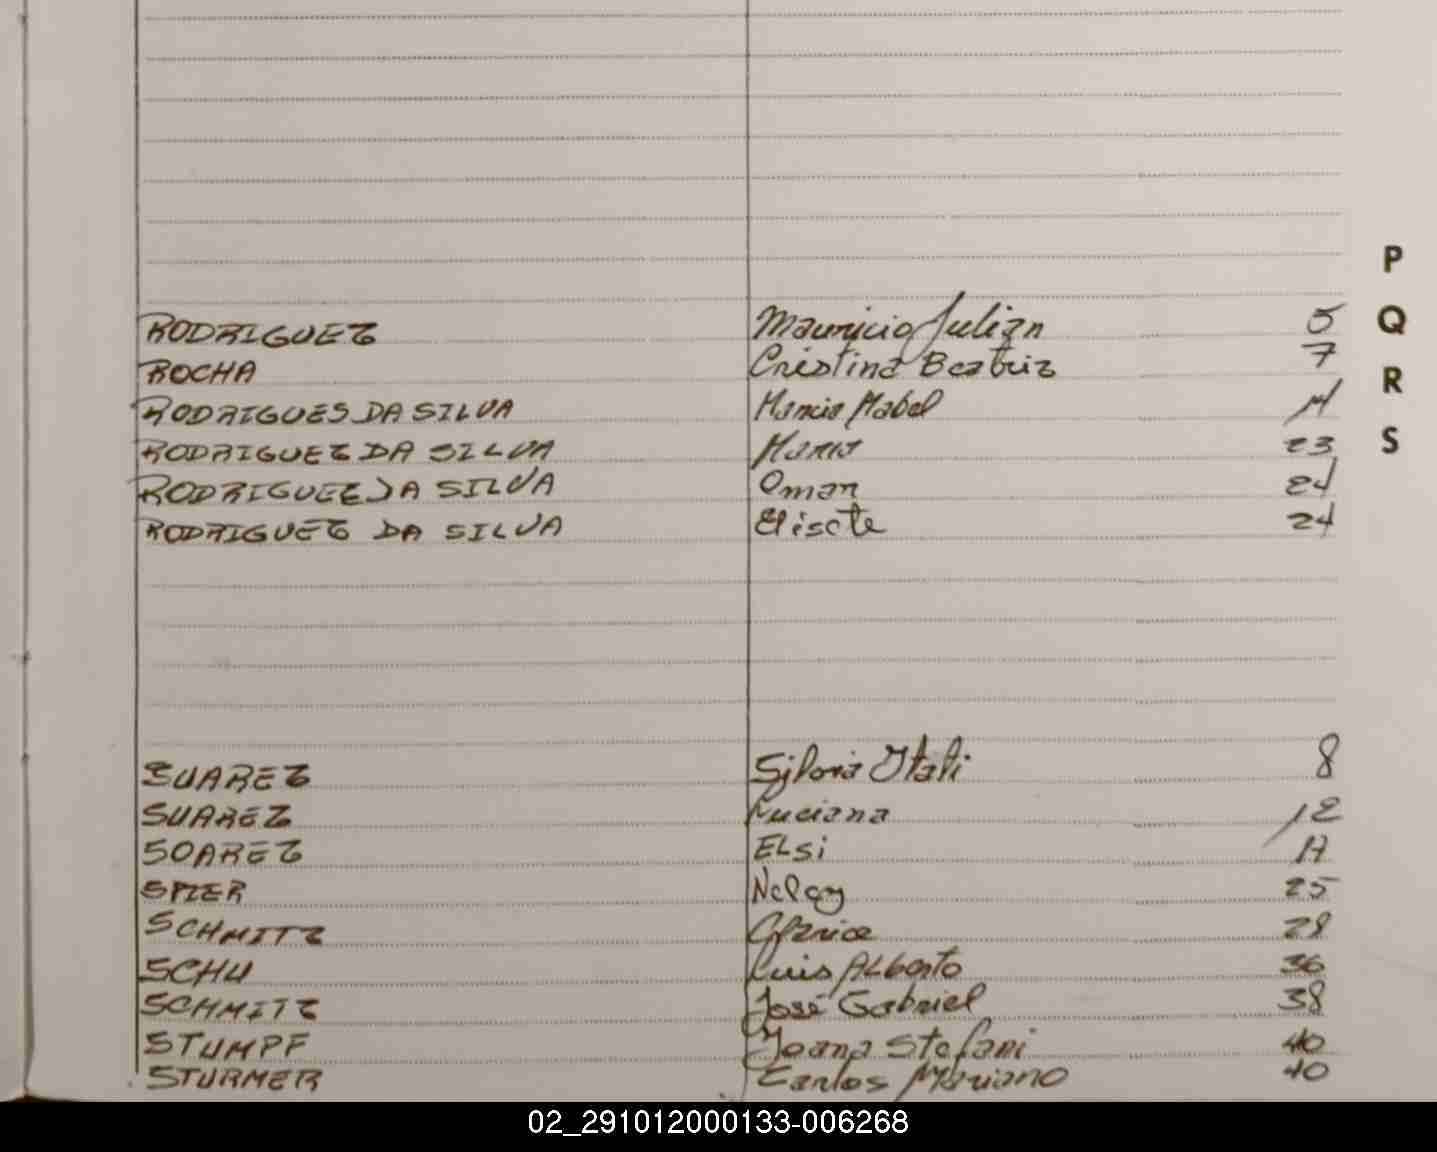 P
Q
R
S
RODRIGUEZ Mauricio Julian 5
ROCHA Cristina Beatriz 7
RODRIGUES DA SILVA Mabel
RODRIGUEZ DA SILVA 23
RODRIGUEZ DA SILVA Omar 24
RODRIGUEZ DA SILVA Elisete 24
SUAREZ Silvana Itati 8
SUAREZ Luciana 12
SOAREZ ELsi 17
SPIER 25
SCHMITZ 28
SCHU Luis ALberto 36
SCHMITZ José Gabriel 38
STUMPF Joana Stefani 40
STURMER Carlos Mariano 40
02_291012000133-006268